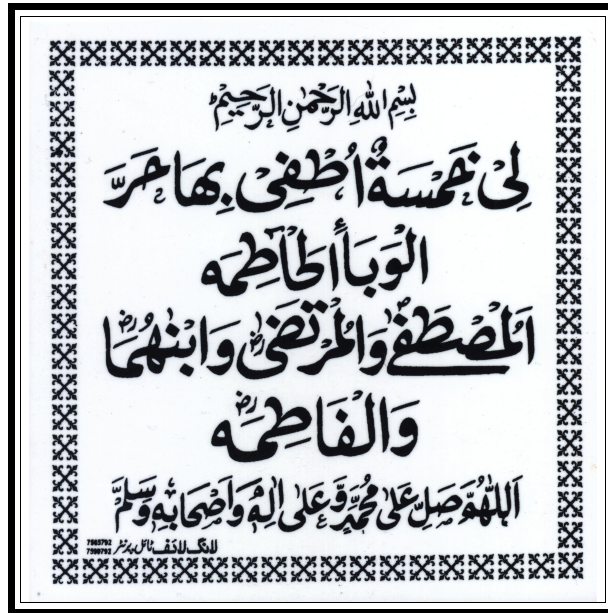 بِسْمِ اللهِ الرَّحْمٰنِ الرَّحِيْمِ
لِىْ خَمْسَةٌ اُطْفِىْ بِهَا حَرَّ
الْوَبَاأَلْحَاطِمَه
اَلْمُصْطَفٰےؐ وَالْمُرْتَضٰىؓ وَابْنٰهُمَاؓ
وَالْفَاطِمَهؓ
اَللّٰهُمَّ صَلِّ عَلٰى مُحَمَّدٍ وَّ عَلٰى اٰلِهٖ وَاَصْحَابِهٖ وَسَلِّمْ
لانگ لائف ٹائل پرنٹر 7585792
7590792